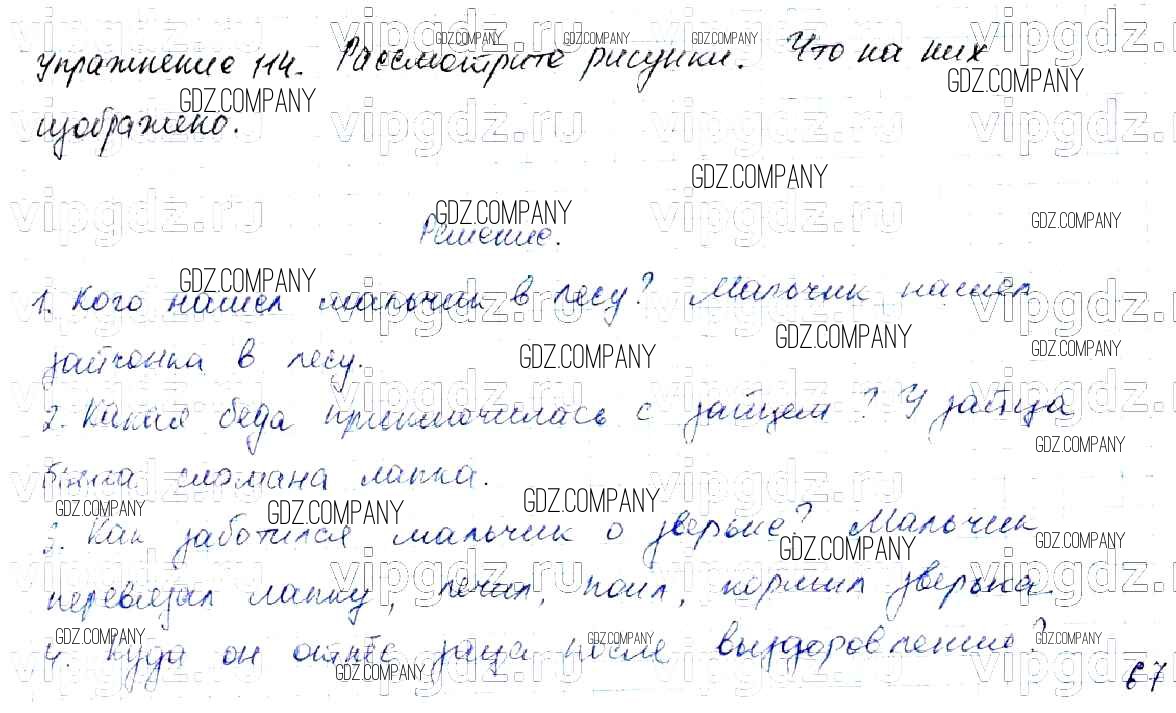 Упражнение 114. Рассмотрите рисунки. Что на них
изображено.
Решение.
1. Кого нашел мальчик в лесу? Мальчик нашел
зайчонка в лесу.
2. Какая беда приключилась с зайцем? У зайца
была сломана лапка.
3. Как заботился мальчик о зверьке? Мальчик
перевязал лапку, лечил, поил, кормил зверька.
4. Куда он отнёс заца после выздоровление?
67
vipgdz.ru
GDZ.COMPANY